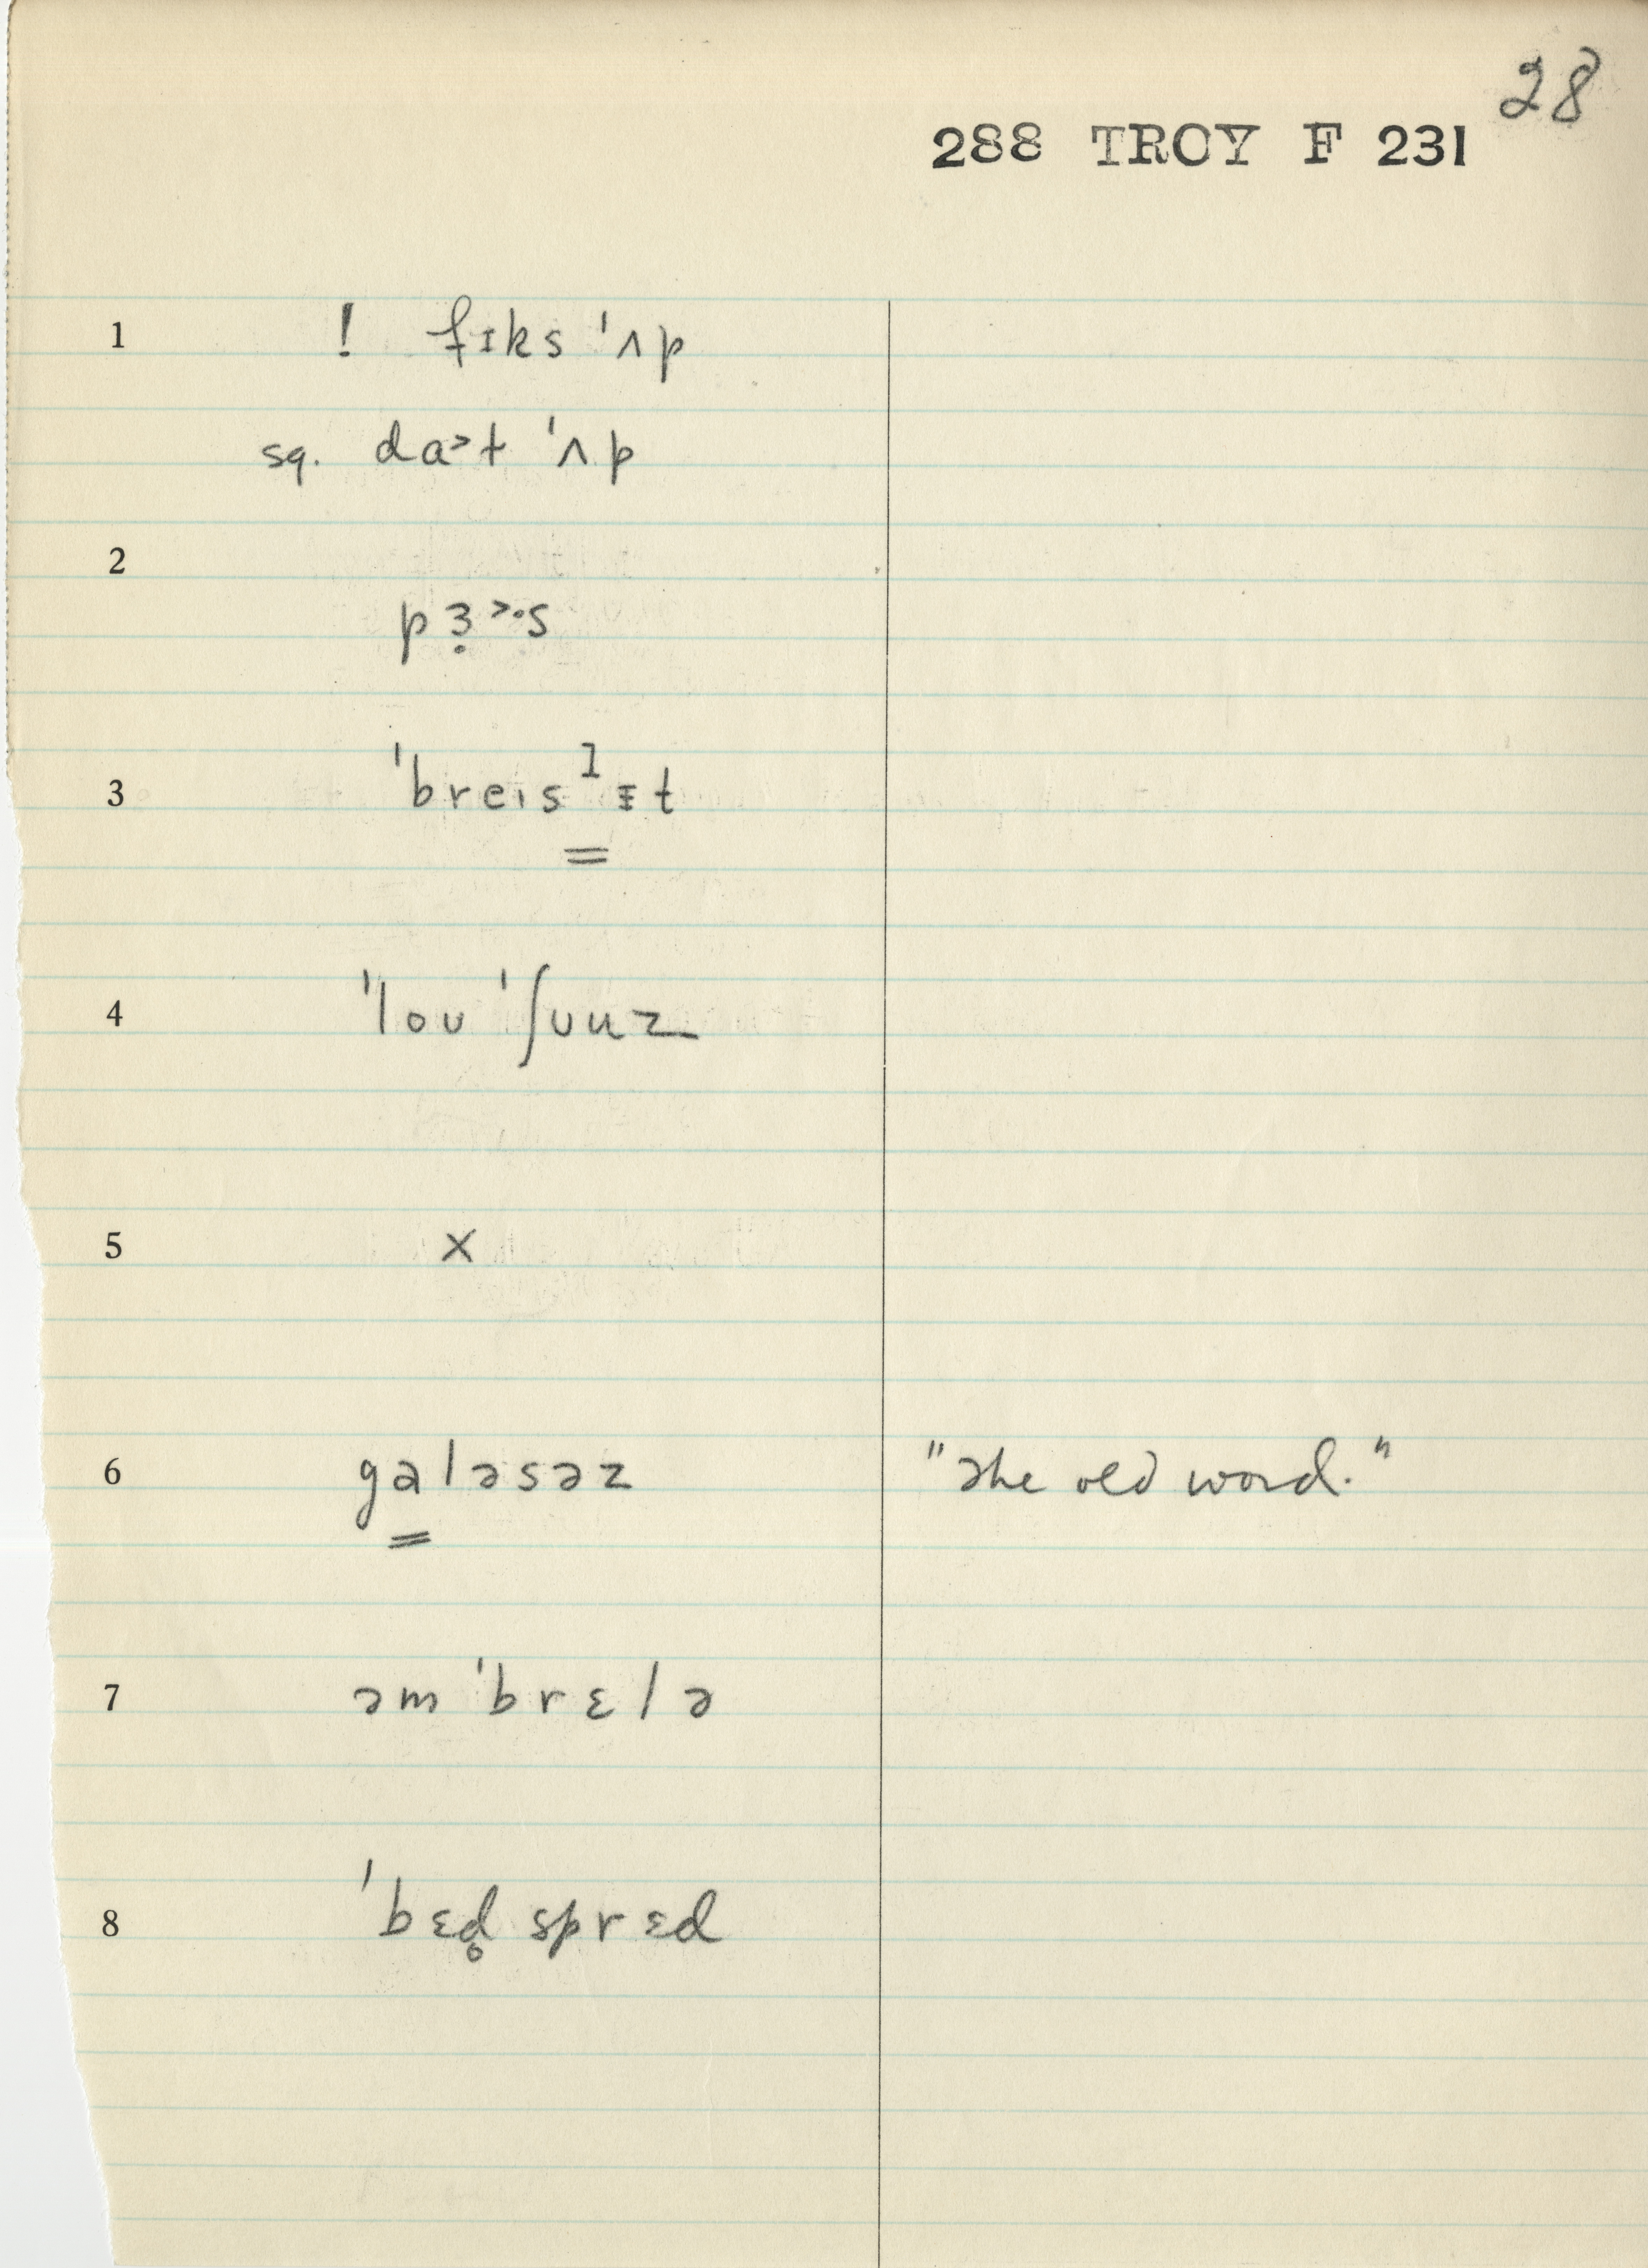 28
288 TROY F 231
1 ! fɪks 'ʌp
sq. da>t 'ʌp
2
pɜ̣>·s
3 'breɪsˡɪt
4 'loʊ 'ʃʊuz
5 x
6 galəsəz "the old word."
7 əm'brɛlə
8 'bɛd̥sprɛd